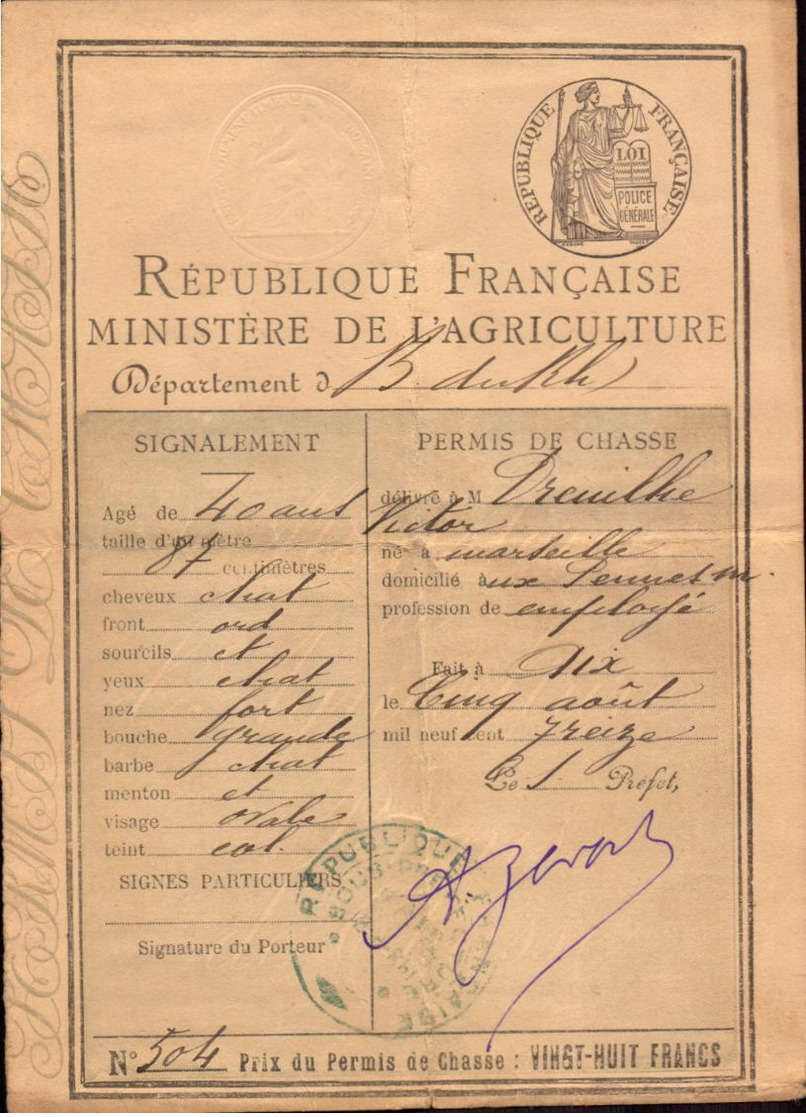 RÉPUBLIQUE FRANÇAISE
LOI
POLICE
GÉNÉRALE
RÉPUBLIQUE FRANÇAISE
MINISTÈRE DE L'AGRICULTURE
Département d B. du Rh
SIGNALEMENT
Agé de 40 ans
taille d'un mètre
87 centimètres
cheveux chat
front ord
sourcils et
yeux chat
nez fort
bouche grande
barbe chat
menton et
visage ovale
teint col.
SIGNES PARTICULIERS
Signature du Porteur
PERMIS DE CHASSE
délivré à M Dreuilhe
Victor
né à marseille
domicilié aux Pennes m.
profession de employé
Fait à Aix
le Cinq août
mil neuf cent treize
Le S. Préfet,
RÉPUBLIQUE FRANÇAISE
PERMIS DE CHASSE
N° 504 Prix du Permis de Chasse : VINGT-HUIT FRANCS